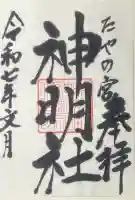 奉拝
たやの宮
神明社
令和七年文月